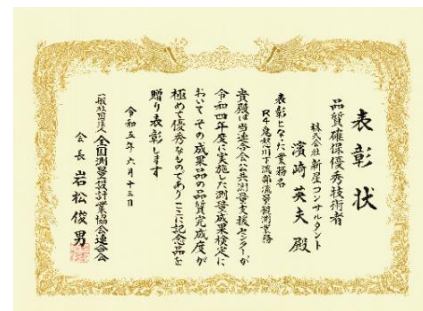 表彰状
品質確保優秀技術者
株式会社 新星コンサルタント
濱崎 英夫 殿
表彰となった業務名
R4鬼怒川下流部流量観測業務
貴殿は当連合会公共測量支援センターが
令和四年度に実施した測量成果検定に
おいてその成果品の品質完成度が
極めて優秀なものでありここに記念品を
贈り表彰します
令和五年六月十三日
一般社団法人 全国測量設計業協会連合会
会長 岩松俊男